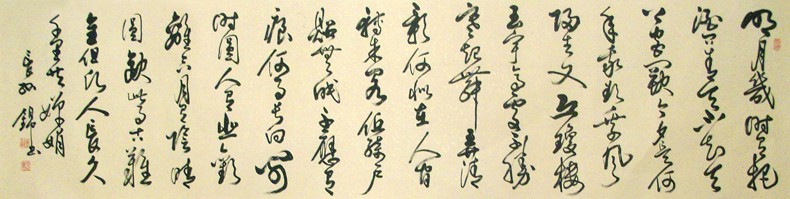 明月幾時有把
酒問青天不知天
上宮闕今夕是何
年我欲乘風
歸去又恐瓊樓
玉宇高處不勝
寒起舞弄清
影何似在人間
轉朱閣低綺戶
照無眠不應有
恨何事長向別
時圓人有悲歡
離合月有陰晴
圓缺此事古難
全但願人長久
千里共嬋娟